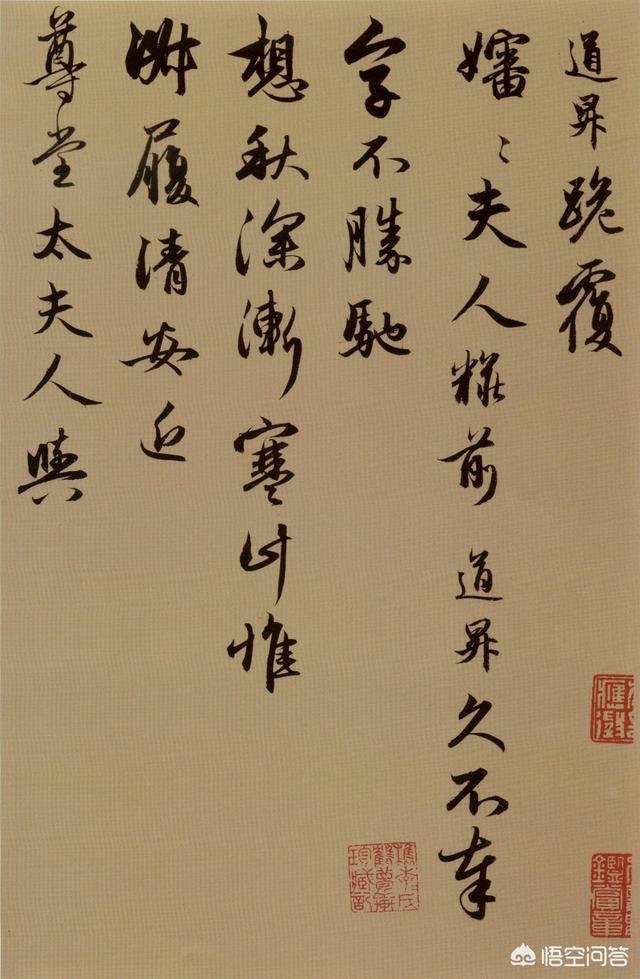 道昇跪覆
嬸〻夫人粧前 道昇久不奉
字不勝馳
想秋深漸寒計惟
淑履清安近
尊堂太夫人與
悟空问答